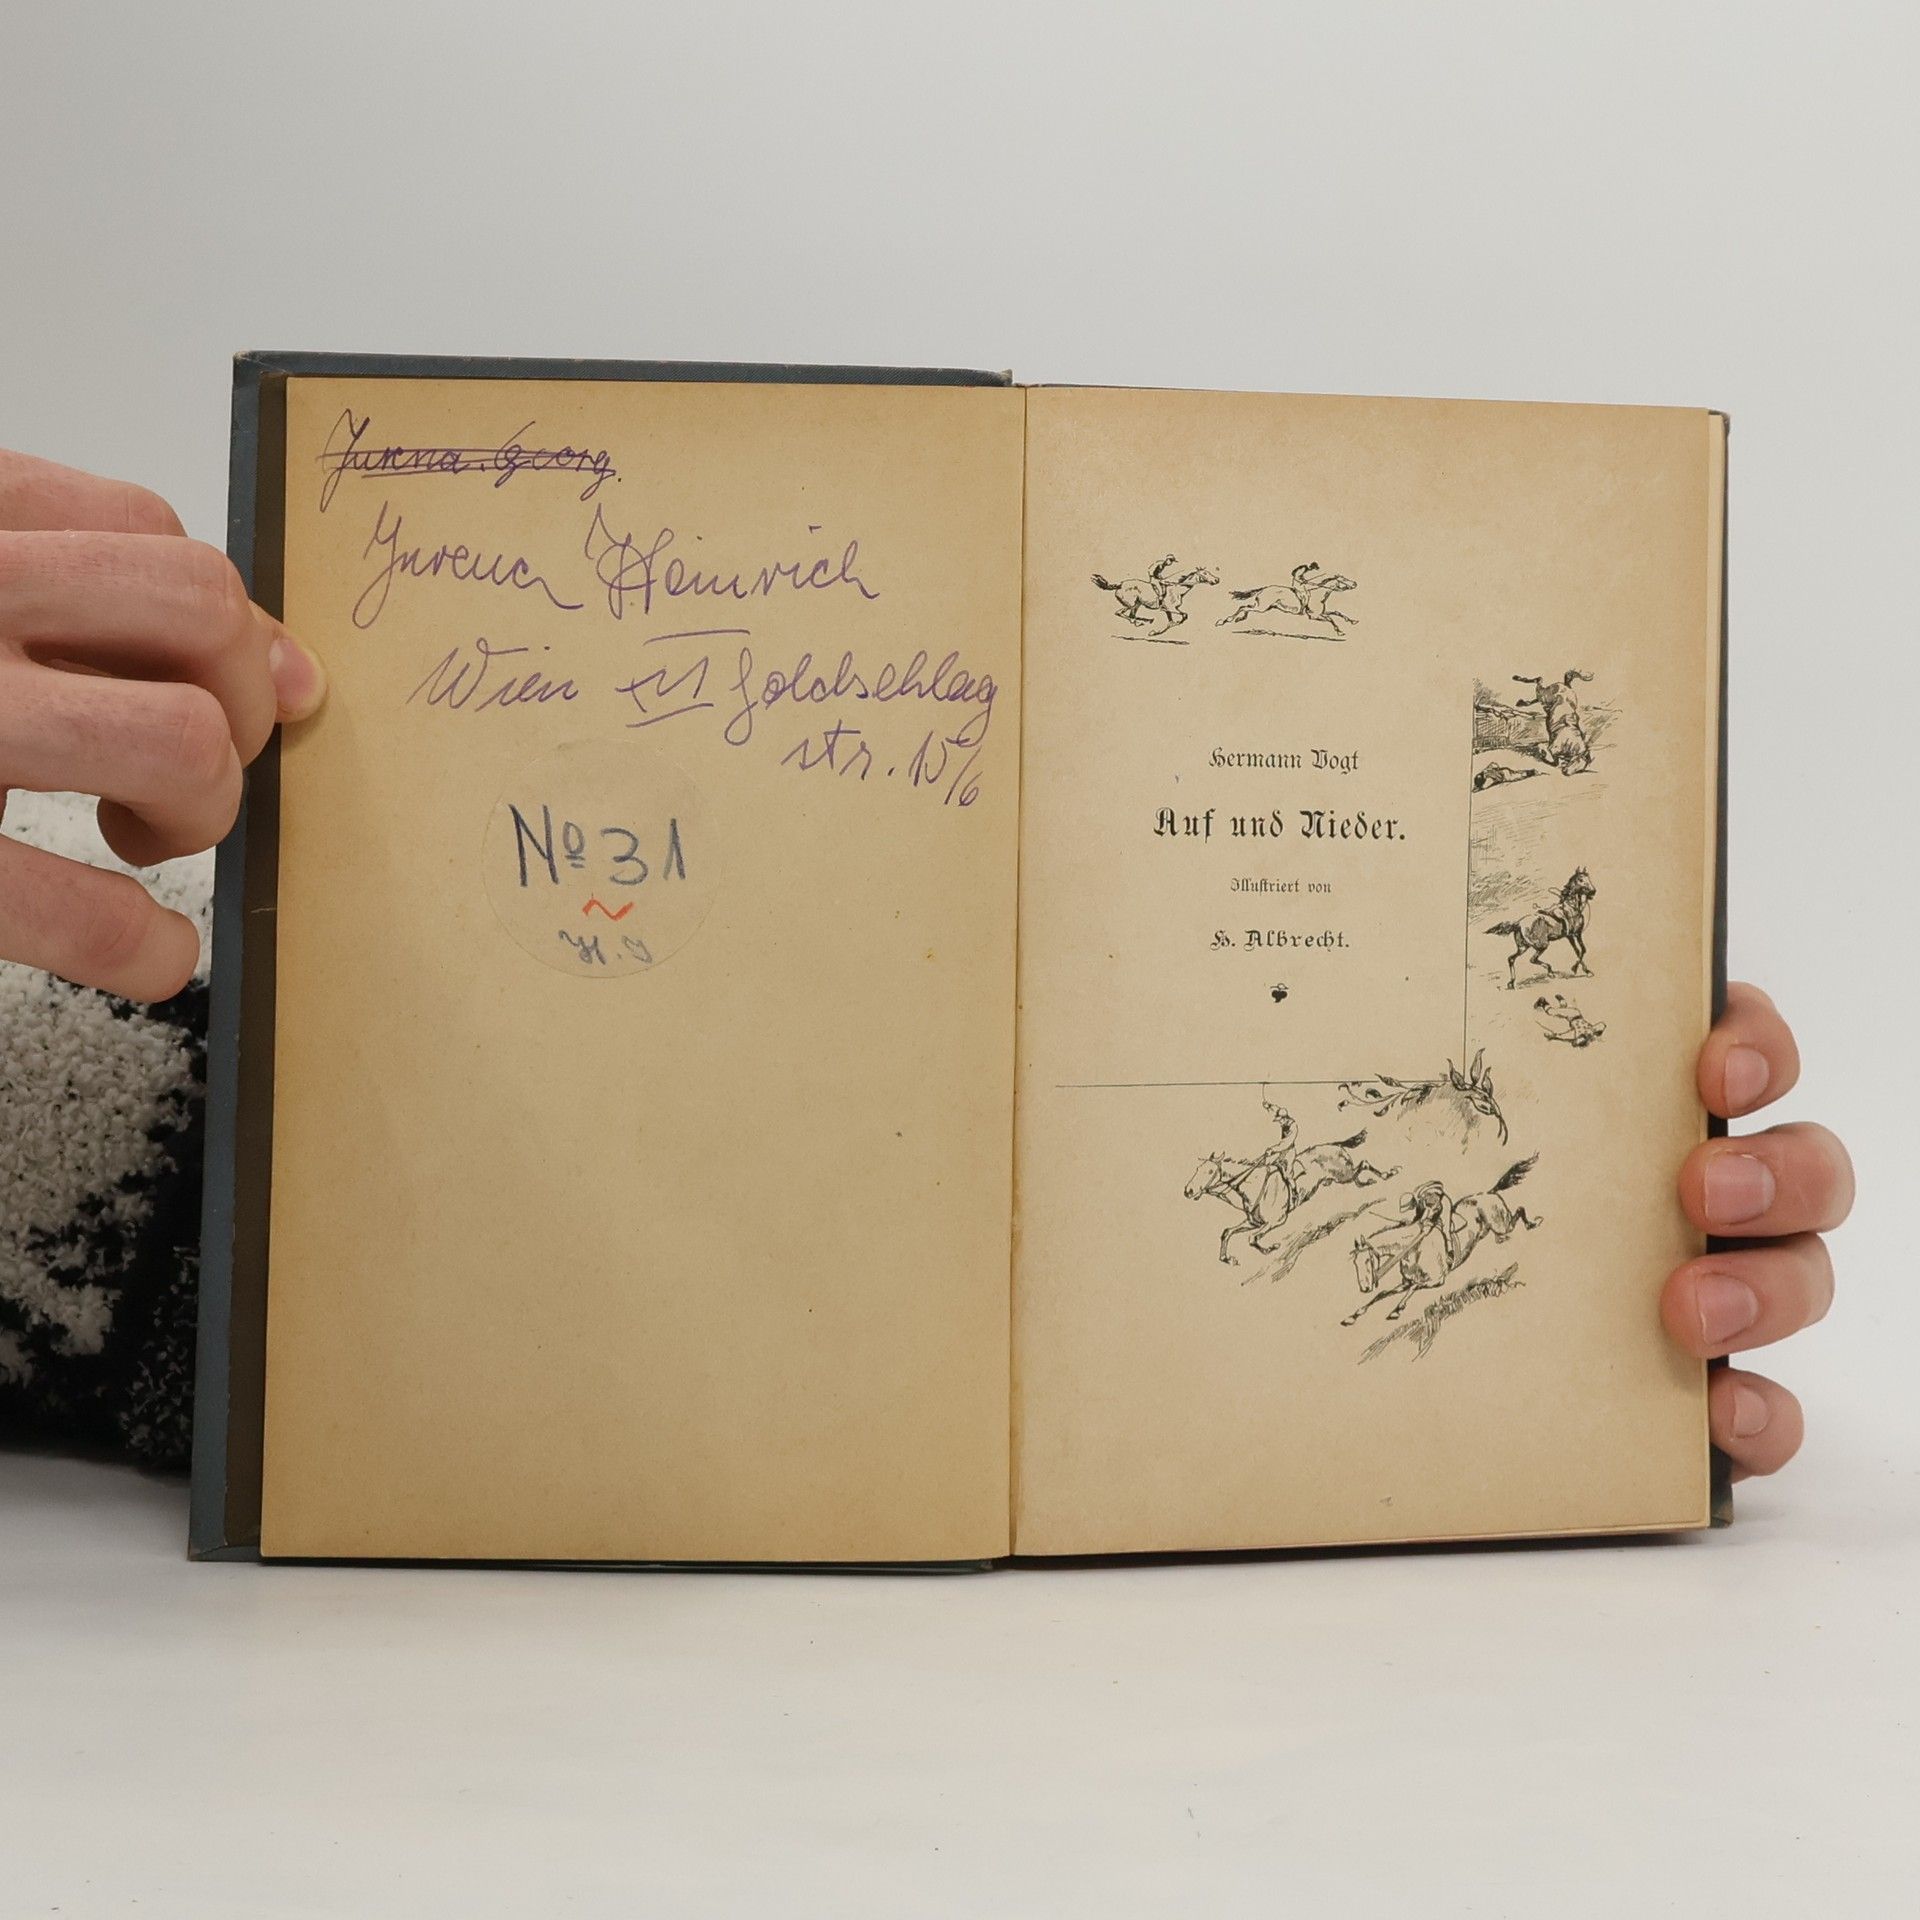 Georg.
Heinrich
Wien Goldschlag
str. 15/6
Nº 31
H. J
Hermann Vogt
Auf und Nieder.
Illustriert von
H. Albrecht.